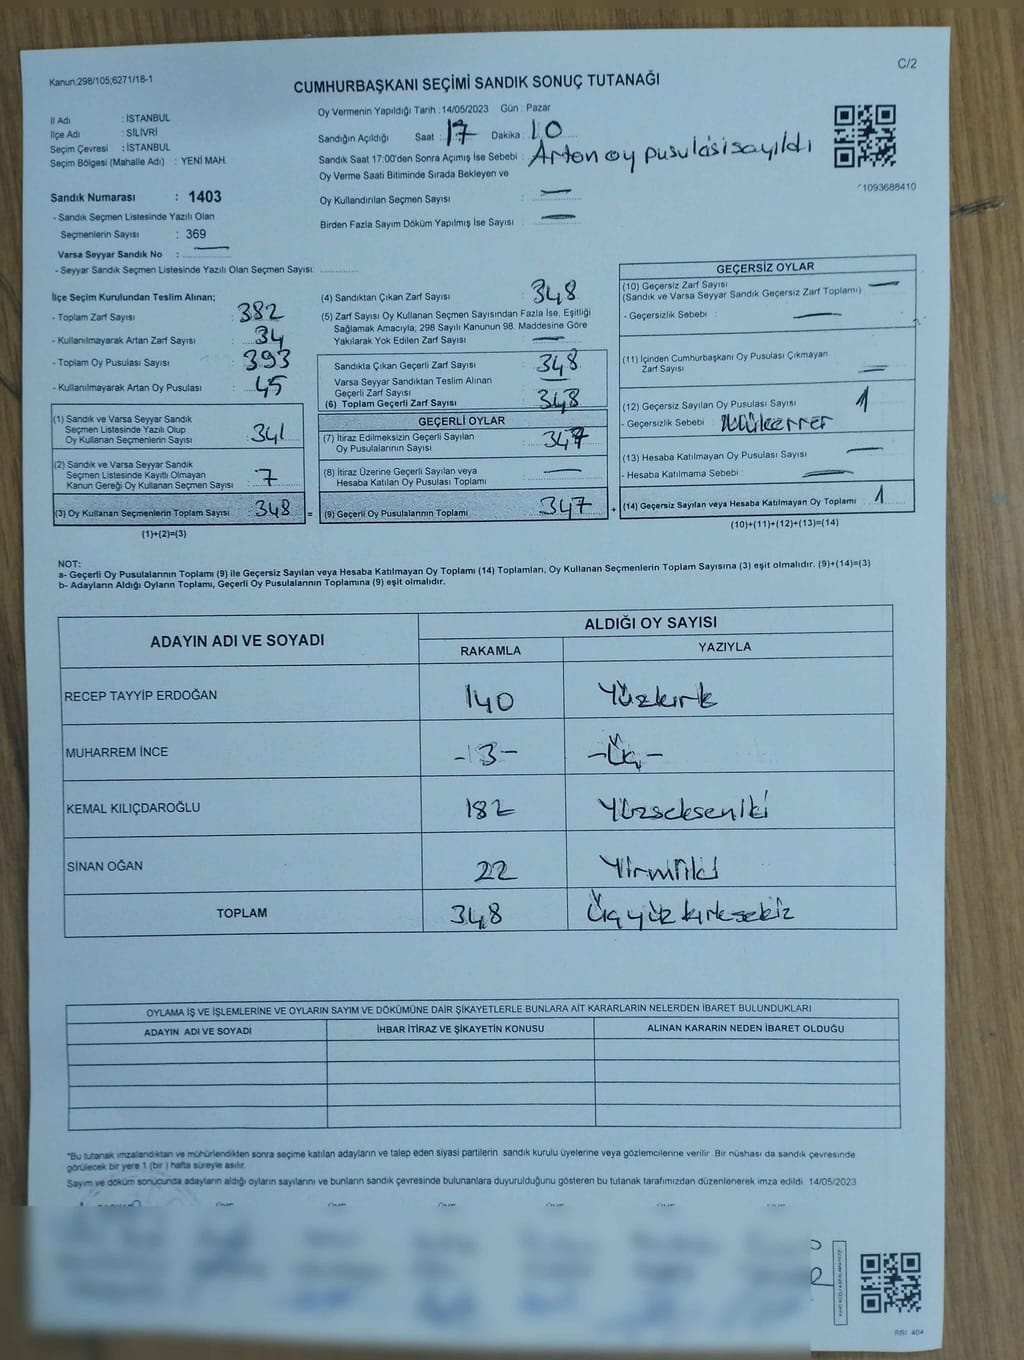 Kanun,298/105;6271/18-1
C/2
CUMHURBAŞKANI SEÇİMİ SANDIK SONUÇ TUTANAĞI
İl Adı : İSTANBUL
İlçe Adı : SİLİVRİ
Seçim Çevresi : İSTANBUL
Seçim Bölgesi (Mahalle Adı) : YENİ MAH.
Sandık Numarası : 1403
- Sandık Seçmen Listesinde Yazılı Olan
Seçmenlerin Sayısı : 369
Varsa Seyyar Sandık No :
- Seyyar Sandık Seçmen Listesinde Yazılı Olan Seçmen Sayısı:
Oy Vermenin Yapıldığı Tarih : 14/05/2023 Gün : Pazar
Sandığın Açıldığı Saat : 17 Dakika : 10
Sandık Saat 17:00'den Sonra Açımış İse Sebebi : Artan oy pusulası sayıldı
Oy Verme Saati Bitiminde Sırada Bekleyen ve
Oy Kullandırılan Seçmen Sayısı : —
Birden Fazla Sayım Döküm Yapılmış İse Sayısı : —
1093688410
İlçe Seçim Kurulundan Teslim Alınan;
- Toplam Zarf Sayısı : 382
- Kullanılmayarak Artan Zarf Sayısı : 34
- Toplam Oy Pusulası Sayısı : 393
- Kullanılmayarak Artan Oy Pusulası : 45
(1) Sandık ve Varsa Seyyar Sandık
Seçmen Listesinde Yazılı Olup
Oy Kullanan Seçmenlerin Sayısı : 341
(2) Sandık ve Varsa Seyyar Sandık
Seçmen Listesinde Kayıtlı Olmayan
Kanun Gereği Oy Kullanan Seçmen Sayısı : 7
(3) Oy Kullanan Seçmenlerin Toplam Sayısı : 348
(1)+(2)=(3)
(4) Sandıktan Çıkan Zarf Sayısı : 348
(5) Zarf Sayısı Oy Kullanan Seçmen Sayısından Fazla İse, Eşitliği
Sağlamak Amacıyla; 298 Sayılı Kanunun 98. Maddesine Göre
Yakılarak Yok Edilen Zarf Sayısı : —
Sandıkta Çıkan Geçerli Zarf Sayısı : 348
Varsa Seyyar Sandıktan Teslim Alınan
Geçerli Zarf Sayısı : —
(6) Toplam Geçerli Zarf Sayısı : 348
GEÇERLİ OYLAR
(7) İtiraz Edilmeksizin Geçerli Sayılan
Oy Pusulalarının Sayısı : 347
(8) İtiraz Üzerine Geçerli Sayılan veya
Hesaba Katılan Oy Pusulası Toplamı : —
= (9) Geçerli Oy Pusulalarının Toplamı : 347 +
GEÇERSİZ OYLAR
(10) Geçersiz Zarf Sayısı : —
(Sandık ve Varsa Seyyar Sandık Geçersiz Zarf Toplamı)
- Geçersizlik Sebebi : —
(11) İçinden Cumhurbaşkanı Oy Pusulası Çıkmayan
Zarf Sayısı : —
(12) Geçersiz Sayılan Oy Pusulası Sayısı : 1
- Geçersizlik Sebebi :
(13) Hesaba Katılmayan Oy Pusulası Sayısı : —
- Hesaba Katılmama Sebebi : —
(14) Geçersiz Sayılan veya Hesaba Katılmayan Oy Toplamı : 1
(10)+(11)+(12)+(13)=(14)
NOT:
a- Geçerli Oy Pusulalarının Toplamı (9) ile Geçersiz Sayılan veya Hesaba Katılmayan Oy Toplamı (14) Toplamları, Oy Kullanan Seçmenlerin Toplam Sayısına (3) eşit olmalıdır. (9)+(14)=(3)
b- Adayların Aldığı Oyların Toplamı, Geçerli Oy Pusulalarının Toplamına (9) eşit olmalıdır.
ADAYIN ADI VE SOYADI
ALDIĞI OY SAYISI
RAKAMLA YAZIYLA
RECEP TAYYİP ERDOĞAN 140 Yüzkırk
MUHARREM İNCE -3- -Üç-
KEMAL KILIÇDAROĞLU 182 Yüzsekseniki
SİNAN OĞAN 22 Yirmiiki
TOPLAM 348 Üçyüz kırksekiz
OYLAMA İŞ VE İŞLEMLERİNE VE OYLARIN SAYIM VE DÖKÜMÜNE DAİR ŞİKAYETLERLE BUNLARA AİT KARARLARIN NELERDEN İBARET BULUNDUKLARI
ADAYIN ADI VE SOYADI İHBAR İTİRAZ VE ŞİKAYETİN KONUSU ALINAN KARARIN NEDEN İBARET OLDUĞU
*Bu tutanak imzalandıktan ve mühürlendikten sonra seçime katılan adayların ve talep eden siyasi partilerin sandık kurulu üyelerine veya gözlemcilerine verilir. Bir nüshası da sandık çevresinde
görülecek bir yere 1 (bir) hafta süreyle asılır.
Sayım ve döküm sonucunda adayların aldığı oyların sayılarını ve bunların sandık çevresinde bulunanlara duyurulduğunu gösteren bu tutanak tarafımızdan düzenlenerek imza edildi. 14/05/2023